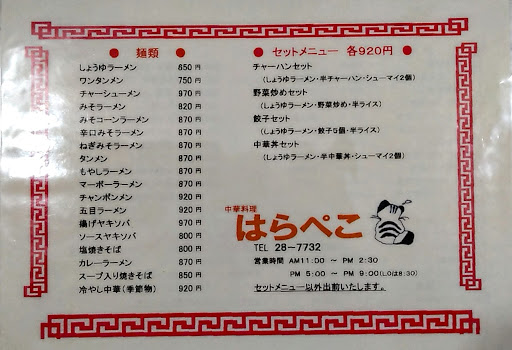 ● 麺類 ●
しょうゆラーメン 650円
ワンタンメン 750円
チャーシューメン 970円
みそラーメン 820円
みそコーンラーメン 870円
辛口みそラーメン 870円
ねぎみそラーメン 870円
タンメン 870円
もやしラーメン 870円
マーボーラーメン 870円
チャンポンメン 920円
五目ラーメン 920円
揚げヤキソバ 970円
ソースヤキソバ 800円
塩焼きそば 800円
カレーラーメン 870円
スープ入り焼きそば 850円
冷やし中華(季節物) 920円
● セットメニュー 各920円 ●
チャーハンセット
(しょうゆラーメン・半チャーハン・シューマイ2個)
野菜炒めセット
(しょうゆラーメン・野菜炒め・半ライス)
餃子セット
(しょうゆラーメン・餃子5個・半ライス)
中華丼セット
(しょうゆラーメン・半中華丼・シューマイ2個)
中華料理
はらぺこ
TEL 28-7732
営業時間 AM11:00 ~ PM 2:30
PM 5:00 ~ PM 9:00(L.Oは8:30)
セットメニュー以外出前いたします。